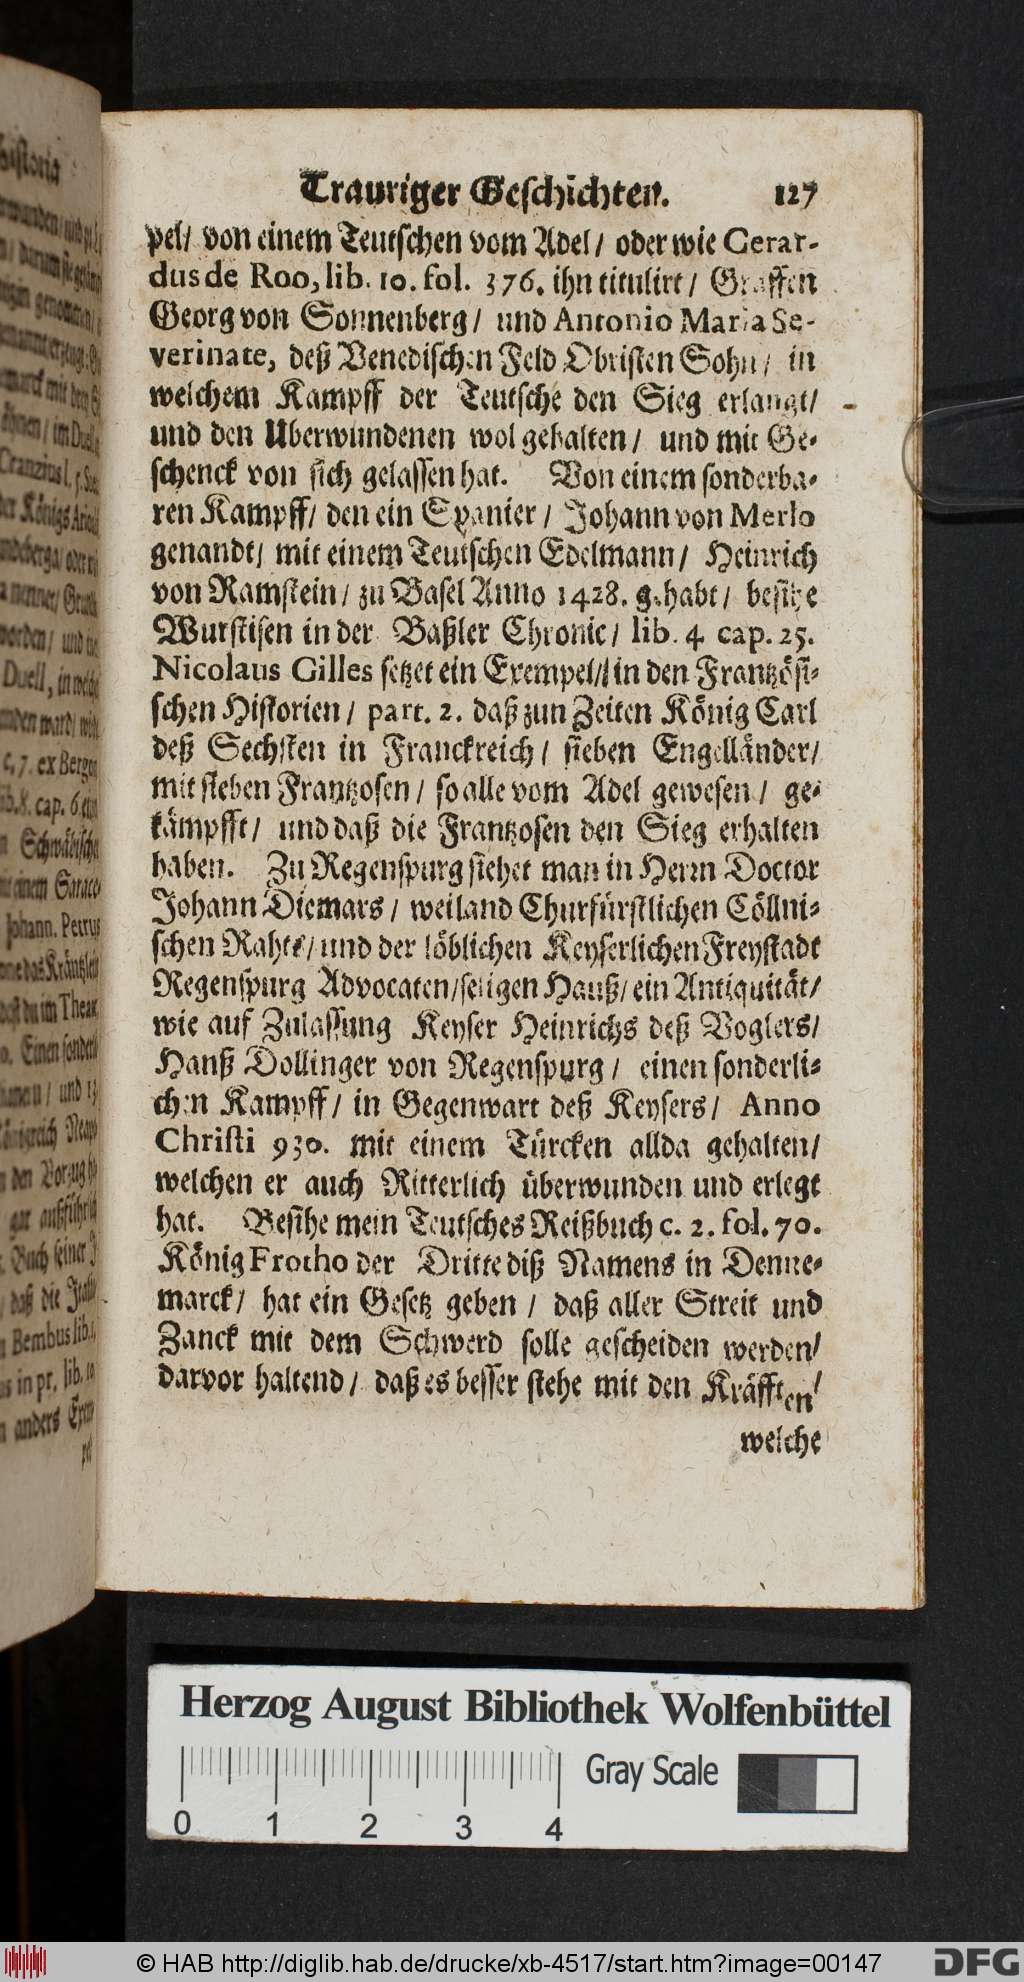 Trauriger Geschichten. 127
pel/ von einem Teutschen vom Adel/ oder wie Gerar-
dus de Roo, lib. 10. fol. 376. ihn titulirt/ Graffen
Georg von Sonnenberg/ und Antonio Maria Se-
verinate, deß Venedischen Feld Obristen Sohn/ in
welchem Kampff der Teutsche den Sieg erlangt/
und den Uberwundenen wol gehalten/ und mit Ge-
schenck von sich gelassen hat. Von einem sonderba-
ren Kampff/ den ein Spanier/ Johann von Merlo
genandt/ mit einem Teutschen Edelmann/ Heinrich
von Ramstein/ zu Basel Anno 1428. gehabt/ besihe
Wurstisen in der Baßler Chronic/ lib. 4 cap. 25.
Nicolaus Gilles setzet ein Exempel/ in den Frantzösi-
schen Historien/ part. 2. daß zun Zeiten König Carl
deß Sechsten in Franckreich/ sieben Engelländer/
mit sieben Frantzosen/ so alle vom Adel gewesen/ ge-
kämpfft/ und daß die Frantzosen den Sieg erhalten
haben. Zu Regenspurg siehet man in Herrn Doctor
Johann Diemars/ weiland Churfürstlichen Cöllni-
schen Rahts/ und der löblichen Keyserlichen Freystadt
Regenspurg Advocaten/ seligen Hauß/ ein Antiquität/
wie auf Zulassung Keyser Heinrichs deß Voglers/
Hanß Dollinger von Regenspurg/ einen sonderli-
chen Kampff/ in Gegenwart deß Keysers/ Anno
Christi 930. mit einem Türcken allda gehalten/
welchen er auch Ritterlich überwunden und erlegt
hat. Besihe mein Teutsches Reißbuch c. 2. fol. 70.
König Frotho der Dritte diß Namens in Denne-
marck/ hat ein Gesetz geben/ daß aller Streit und
Zanck mit dem Schwerd solle gescheiden werden/
darvor haltend/ daß es besser stehe mit den Kräfften/
welche
Herzog August Bibliothek Wolfenbüttel
Gray Scale
0 1 2 3 4
© HAB http://diglib.hab.de/drucke/xb-4517/start.htm?image=00147
DFG